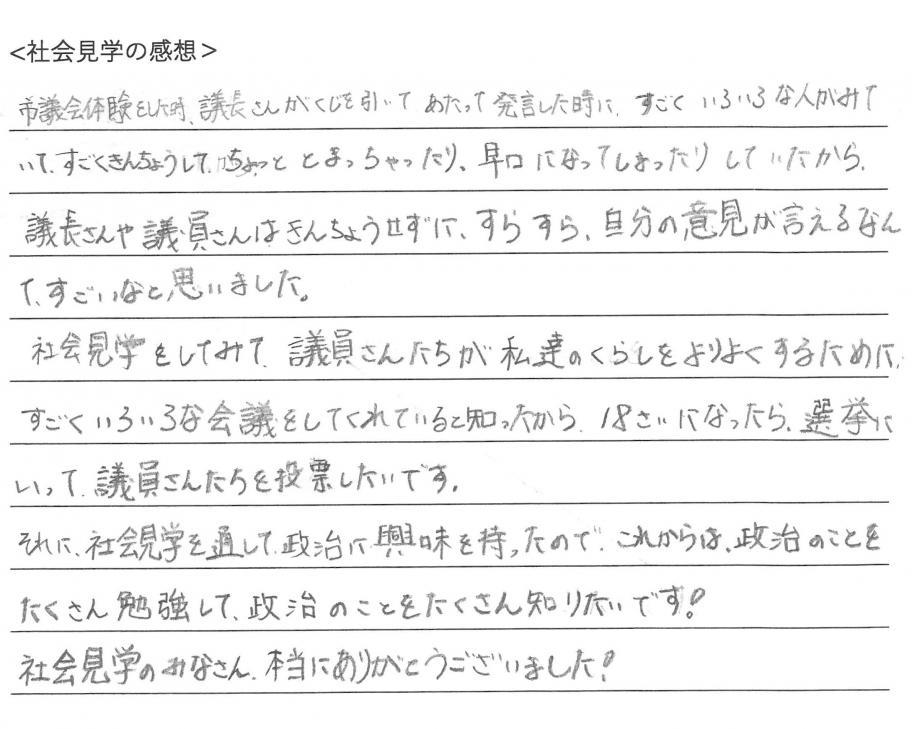 <社会見学の感想>
市議会体験をした時、議長さんがくじを引いてあたって発言した時に、すごくいろいろな人がみて
いて、すごくきんちょうして、ちょっととまっちゃったり、早口になってしまったりしていたから、
議長さんや議員さんはきんちょうせずに、すらすら、自分の意見が言えるなん
て、すごいなと思いました。
社会見学をしてみて、議員さんたちが私達のくらしをよりよくするために、
すごくいろいろな会議をしてくれていると知ったから、18さいになったら、選挙に
いって、議員さんたちを投票したいです。
それに、社会見学を通して、政治に興味を持ったので、これからは、政治のことを
たくさん勉強して、政治のことをたくさん知りたいです!
社会見学のみなさん、本当にありがとうございました!